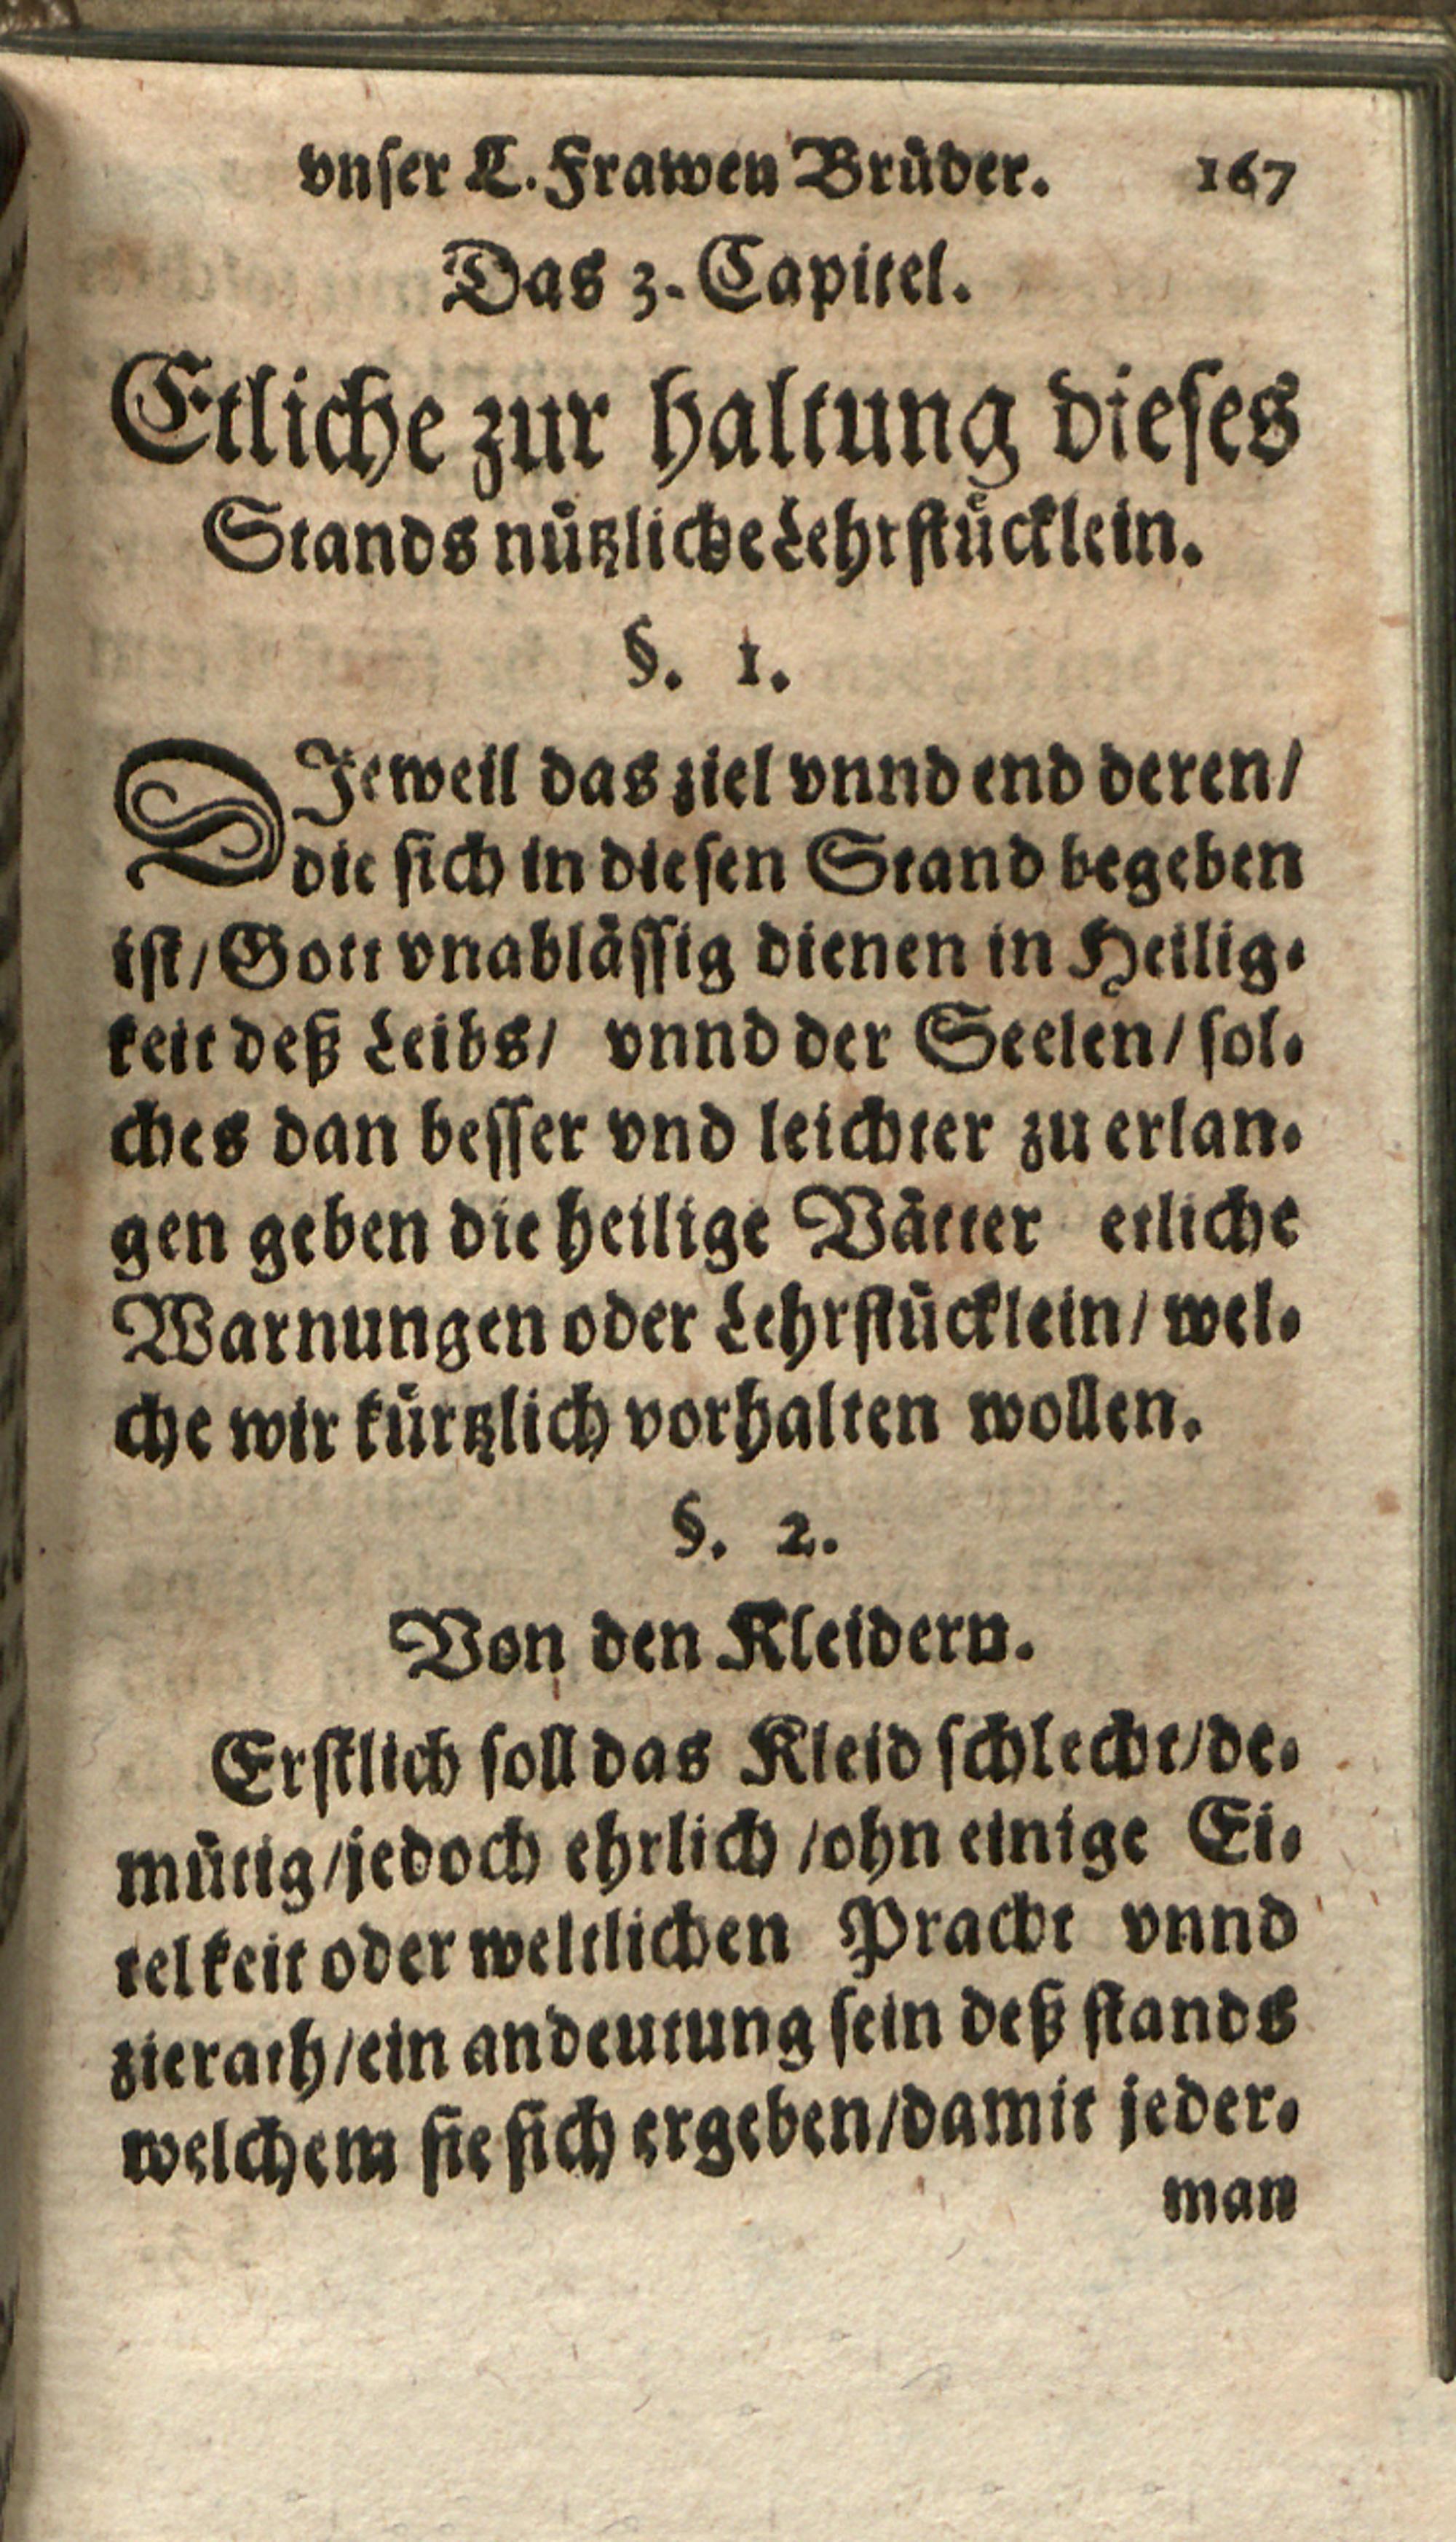 vnser L. Frawen Brüder. 167
Das 3. Capitel.
Etliche zur haltung dieses
Stands nützliche Lehrstücklein.
§. 1.
DJeweil das ziel vnnd end deren/
die sich in diesen Stand begeben
ist/ Gott vnablässig dienen in Heilig-
keit deß Leibs/ vnnd der Seelen/ sol-
ches dan besser vnd leichter zu erlan-
gen geben die heilige Vätter etliche
Warnungen oder Lehrstücklein/ wel-
che wir kürtzlich vorhalten wollen.
§. 2.
Von den Kleidern.
Erstlich soll das Kleid schlecht/de-
mütig/jedoch ehrlich /ohn einige Ei-
telkeit oder weltlichen Pracht vnnd
zierath/ein andeutung sein deß stands
welchem sie sich ergeben/damit jeder-
man